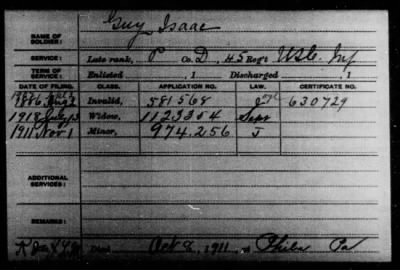 Guy Isaac
NAME OF SOLDIER:
SERVICE: Late rank, P Co. D, 45 Reg't U.S.C. Inf
TERM OF SERVICE: Enlisted , 1 Discharged , 1
DATE OF FILING. CLASS. APPLICATION NO. LAW. CERTIFICATE NO.
1886 Invalid, 581568 630729
1918 July 13 Widow, 1123354 Sept
1911 Nov 1 Minor, 974.256 J
ADDITIONAL SERVICES:
REMARKS:
Died Oct 8, 1911, at Phila Pa